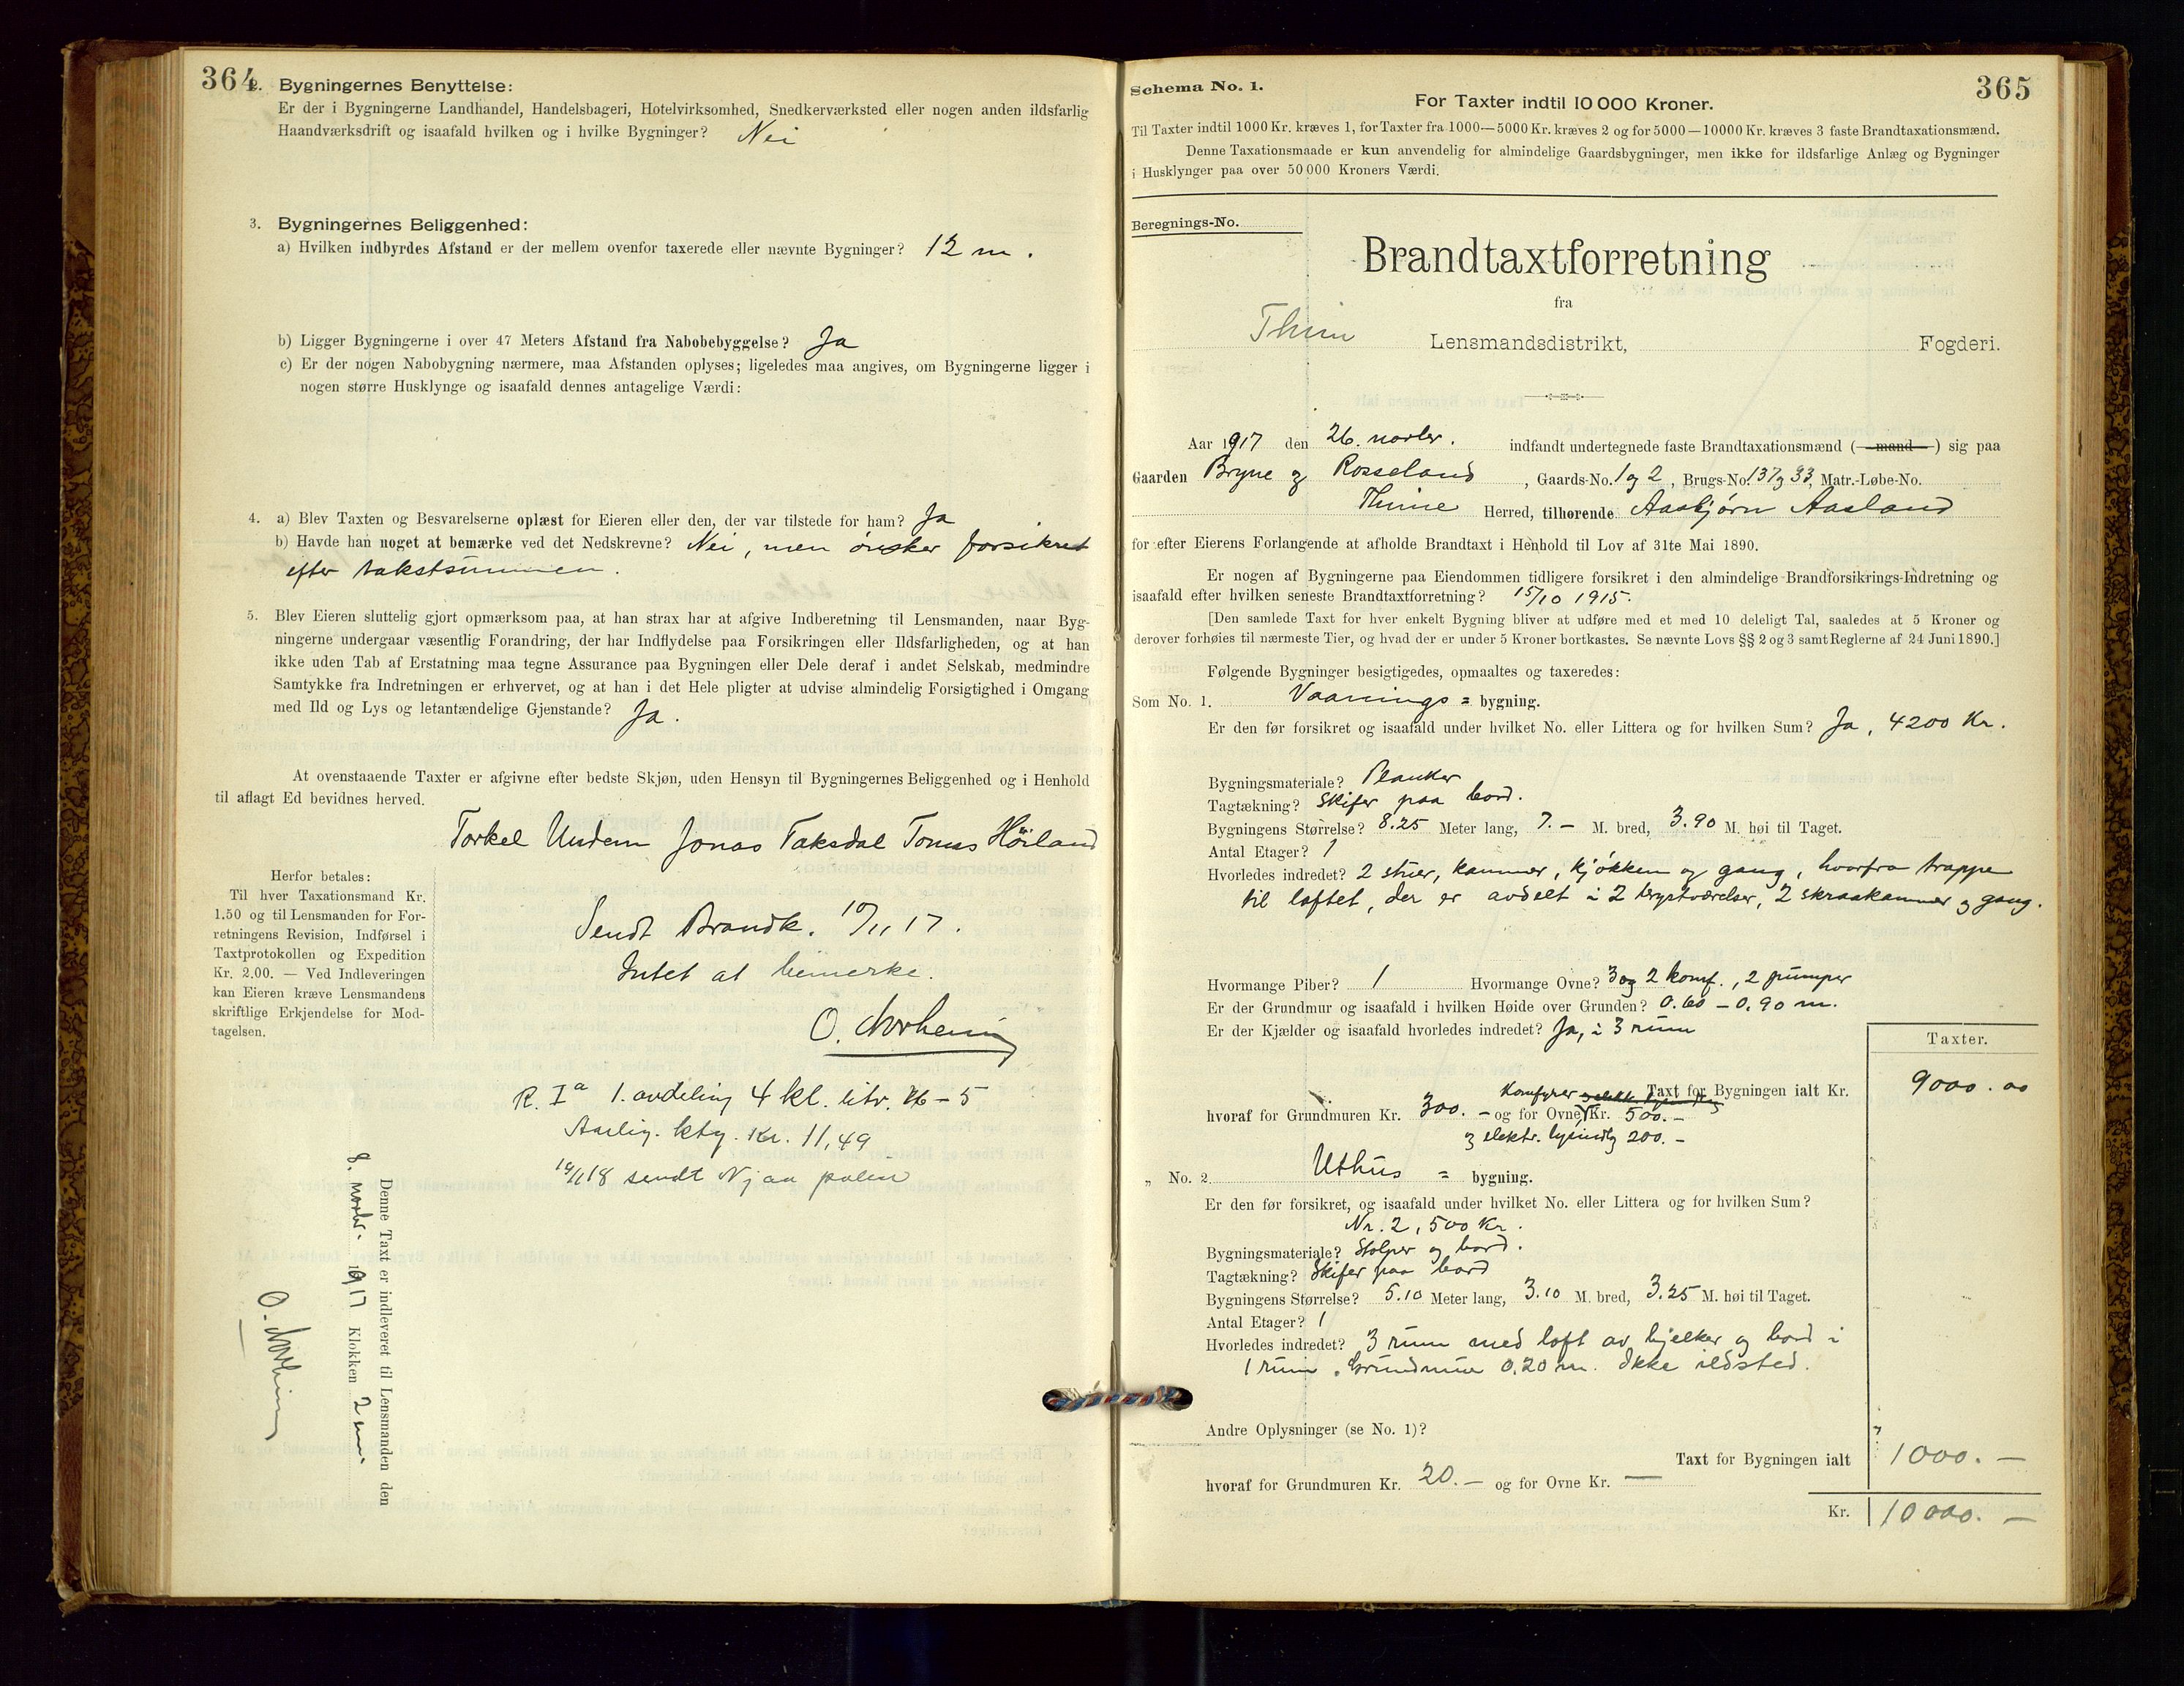 364
2. Bygningernes Benyttelse:
Er der i Bygningerne Landhandel, Handelsbageri, Hotelvirksomhed, Snedkerværksted eller nogen anden ildsfarlig
Haandværksdrift og isaafald hvilken og i hvilke Bygninger? Nei
3. Bygningernes Beliggenhed:
a) Hvilken indbyrdes Afstand er der mellem ovenfor taxerede eller nævnte Bygninger? 12 m.
b) Ligger Bygningerne i over 47 Meters Afstand fra Nabobebyggelse? Ja
c) Er der nogen Nabobygning nærmere, maa Afstanden oplyses; ligeledes maa angives, om Bygningerne ligger i
nogen større Husklynge og isaafald dennes antagelige Værdi:
4. a) Blev Taxten og Besvarelserne oplæst for Eieren eller den, der var tilstede for ham? Ja
b) Havde han noget at bemærke ved det Nedskrevne? Nei, men ønsker forsikret
efter takstsummen.
5. Blev Eieren sluttelig gjort opmærksom paa, at han strax har at afgive Indberetning til Lensmanden, naar Byg-
ningerne undergaar væsentlig Forandring, der har Indflydelse paa Forsikringen eller Ildsfarligheden, og at han
ikke uden Tab af Erstatning maa tegne Assurance paa Bygningen eller Dele deraf i andet Selskab, medmindre
Samtykke fra Indretningen er erhvervet, og at han i det Hele pligter at udvise almindelig Forsigtighed i Omgang
med Ild og Lys og letantændelige Gjenstande? Ja.
At ovenstaaende Taxter er afgivne efter bedste Skjøn, uden Hensyn til Bygningernes Beliggenhed og i Henhold
til aflagt Ed bevidnes herved.
Torkel Undem Jonas Taksdal Tomas Höiland
Herfor betales:
Til hver Taxationsmand Kr.
1.50 og til Lensmanden for For-
retningens Revision, Indførsel i
Taxtprotokollen og Expedition
Kr. 2.00. — Ved Indleveringen
kan Eieren kræve Lensmandens
skriftlige Erkjendelse for Mod-
tagelsen.
Sendt Brandk. 10/11 17.
Intet at bemerke.
R. Iª 1. avdeling 4 kl. litr. 5
Aarlig. ktg. Kr. 11,49
18 sendt Njaa polise
Denne Taxt er indleveret til Lensmanden den
8. novbr. 1917 Klokken 2 em.
365
Schema No. 1.
For Taxter indtil 10 000 Kroner.
Til Taxter indtil 1000 Kr. kræves 1, for Taxter fra 1000—5000 Kr. kræves 2 og for 5000—10000 Kr. kræves 3 faste Brandtaxationsmænd.
Denne Taxationsmaade er kun anvendelig for almindelige Gaardsbygninger, men ikke for ildsfarlige Anlæg og Bygninger
i Husklynger paa over 50 000 Kroners Værdi.
Beregnings-No.
Brandtaxtforretning
fra
Thime Lensmandsdistrikt, Fogderi.
Aar 1917 den 26. indfandt undertegnede faste Brandtaxationsmænd (mand) sig paa
Gaarden Bryne og Rosseland, Gaards-No. 1 og 2, Brugs-No. 137 og 33, Matr.-Løbe-No.
Thime Herred, tilhørende Aasbjørn Aasland
for efter Eierens Forlangende at afholde Brandtaxt i Henhold til Lov af 31te Mai 1890.
Er nogen af Bygningerne paa Eiendommen tidligere forsikret i den almindelige Brandforsikrings-Indretning og
isaafald efter hvilken seneste Brandtaxtforretning? 15/10 1915.
[Den samlede Taxt for hver enkelt Bygning bliver at udføre med et med 10 deleligt Tal, saaledes at 5 Kroner og
derover forhøies til nærmeste Tier, og hvad der er under 5 Kroner bortkastes. Se nævnte Lovs §§ 2 og 3 samt Reglerne af 24 Juni 1890.]
Følgende Bygninger besigtigedes, opmaaltes og taxeredes:
Som No. 1. Vaanings = bygning.
Er den før forsikret og isaafald under hvilket No. eller Littera og for hvilken Sum? Ja, 4200 Kr.
Bygningsmateriale? Planker
Tagtækning? Skifer paa bord.
Bygningens Størrelse? 8.25 Meter lang, 7.— M. bred, 3.90 M. høi til Taget.
Antal Etager? 1
Hvorledes indredet? 2 stuer, kammer, kjøkken og gang, hvorfra trappe
til loftet, der er avdelt i 2 kvistværelser, 2 skraakammer og gang.
Hvormange Piber? 1 Hvormange Ovne? 3 og 2 komf., 2 pumper
Er der Grundmur og isaafald i hvilken Høide over Grunden? 0.60 – 0.90 m.
Er der Kjælder og isaafald hvorledes indredet? Ja, i 3 rum
Taxter.
Komfyrer Taxt for Bygningen ialt Kr. 9000.00
hvoraf for Grundmuren Kr. 300.— og for Ovne Kr. 500.—
og elektr. lysindlg 200.—
„ No. 2. Uthus = bygning.
Er den før forsikret, og isaafald under hvilket No. eller Littera og for hvilken Sum?
Nr. 2, 500 Kr.
Bygningsmateriale? Stolper og bord.
Tagtækning? Skifer paa bord
Bygningens Størrelse? 5.10 Meter lang, 3.10 M. bred, 3.25 M. høi til Taget.
Antal Etager? 1
Hvorledes indredet? 3 rum med loft av bjelker og bord i
1 rum. Grundmur 0.20 m. Ikke ildsted.
Andre Oplysninger (se No. 1)?
Taxt for Bygningen ialt 1000.—
hvoraf for Grundmuren Kr. 20.— og for Ovne Kr. —
Kr. 10000.—